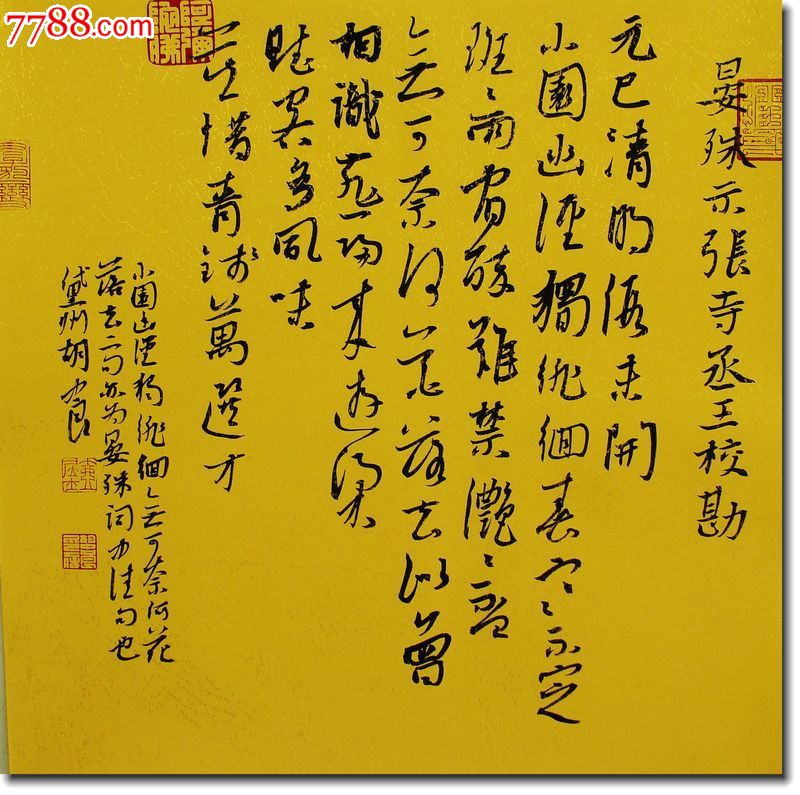 7788.com
晏殊示張寺丞王校勘
元巳清明假未開
小園幽徑獨徘徊春寒不定
斑〻雨宿醉難禁灔〻盃
無可奈何花落去似曾
相識燕歸來遊梁
賦客多風味
莫惜青錢萬選才
小園幽徑獨徘徊無可奈何花
落去二句亦为晏殊詞中佳句也
州胡良